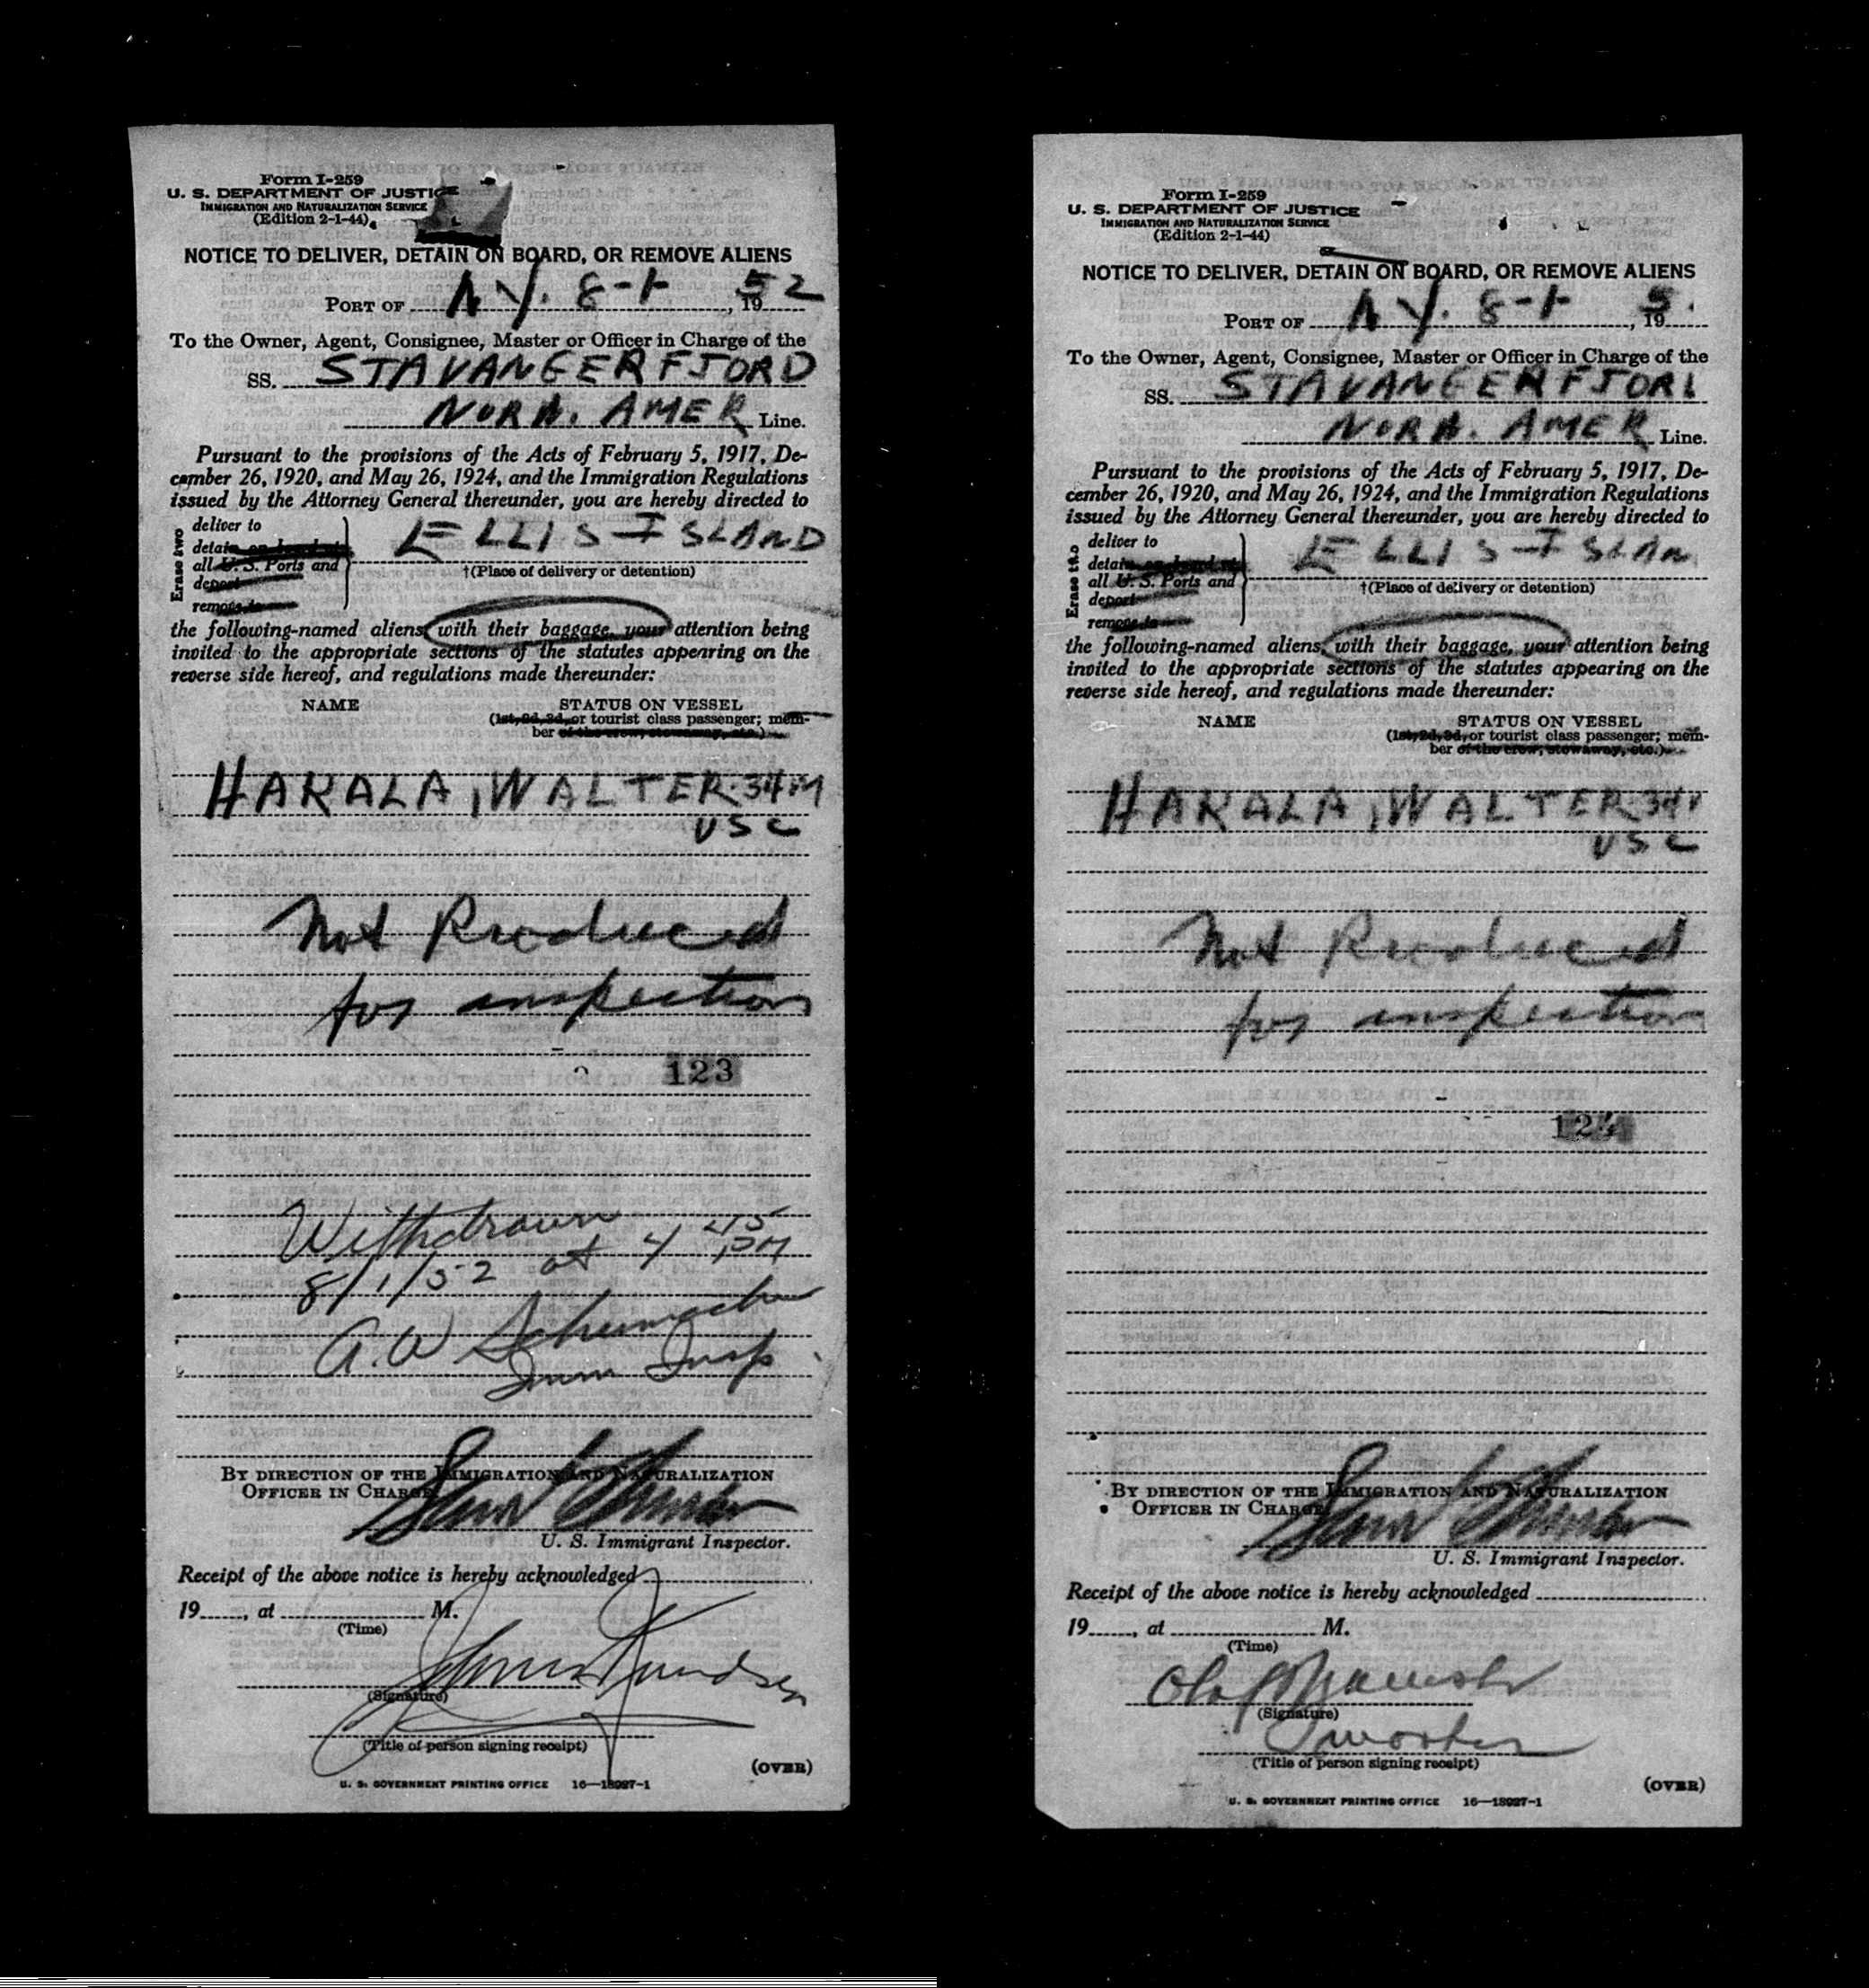 Form I-259
U. S. DEPARTMENT OF JUSTICE
IMMIGRATION AND NATURALIZATION SERVICE
(Edition 2-1-44)
NOTICE TO DELIVER, DETAIN ON BOARD, OR REMOVE ALIENS
PORT OF N.Y. 8-1-, 1952
To the Owner, Agent, Consignee, Master or Officer in Charge of the
SS. STAVANGERFJORD
NORW. AMER Line.
Pursuant to the provisions of the Acts of February 5, 1917, De-
cember 26, 1920, and May 26, 1924, and the Immigration Regulations
issued by the Attorney General thereunder, you are hereby directed to
Erase two
deliver to
detain on board at
all U. S. Ports and
deport
remove to
ELLIS ISLAND
†(Place of delivery or detention)
the following-named aliens, with their baggage, your attention being
invited to the appropriate sections of the statutes appearing on the
reverse side hereof, and regulations made thereunder:
NAME STATUS ON VESSEL
(1st, 2d, 3d, or tourist class passenger; mem-
ber of the crew, stowaway, etc.)
HAKALA, WALTER-34M
USC
Not Produced
for inspection
123
Withdrawn
8/1/52 at 4 45 PM
A.W Schumacher
Imm Insp.
BY DIRECTION OF THE IMMIGRATION AND NATURALIZATION
OFFICER IN CHARGE
U. S. Immigrant Inspector.
Receipt of the above notice is hereby acknowledged
19, at M.
(Time)
(Signature)
(Title of person signing receipt)
(OVER)
U. S. GOVERNMENT PRINTING OFFICE 16—18927-1
Form I-259
U. S. DEPARTMENT OF JUSTICE
IMMIGRATION AND NATURALIZATION SERVICE
(Edition 2-1-44)
NOTICE TO DELIVER, DETAIN ON BOARD, OR REMOVE ALIENS
PORT OF N.Y. 8-1-, 195
To the Owner, Agent, Consignee, Master or Officer in Charge of the
SS. STAVANGERFJORD
NORW. AMER Line.
Pursuant to the provisions of the Acts of February 5, 1917, De-
cember 26, 1920, and May 26, 1924, and the Immigration Regulations
issued by the Attorney General thereunder, you are hereby directed to
Erase two
deliver to
detain on board at
all U. S. Ports and
deport
remove to
ELLIS ISLAN
†(Place of delivery or detention)
the following-named aliens, with their baggage, your attention being
invited to the appropriate sections of the statutes appearing on the
reverse side hereof, and regulations made thereunder:
NAME STATUS ON VESSEL
(1st, 2d, 3d, or tourist class passenger; mem-
ber of the crew, stowaway, etc.)
HAKALA, WALTER-34M
USC
Not Produced
for inspection
124
BY DIRECTION OF THE IMMIGRATION AND NATURALIZATION
OFFICER IN CHARGE
U. S. Immigrant Inspector.
Receipt of the above notice is hereby acknowledged
19, at M.
(Time)
Olaf
(Signature)
(Title of person signing receipt)
(OVER)
U. S. GOVERNMENT PRINTING OFFICE 16—18927-1